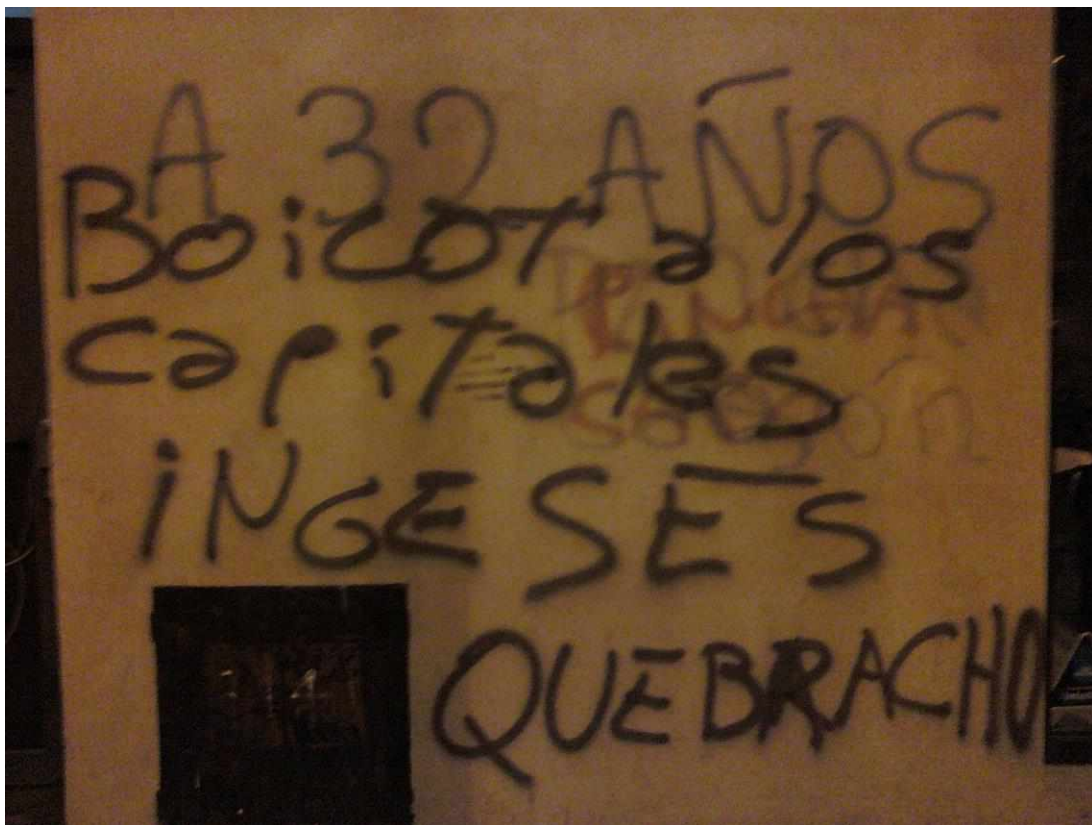 A 32 AÑOS
Boicot a los
capitales
iNGESES
QUEBRACHO